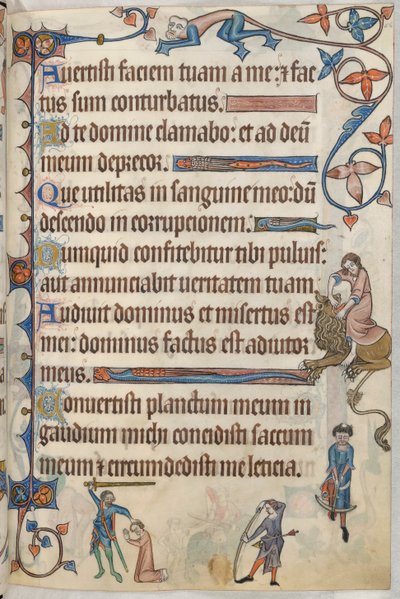 Avertisti faciem tuam a me: ⁊ fac
tus sum conturbatus.
Ad te domine clamabo: et ad deū
meum deprecor.
Que utilitas in sanguine meo: dū
descendo in corrupcionem.
Numquid confitebitur tibi puluis:
aut annunciabit ueritatem tuam.
Audiuit dominus et misertus est
mei: dominus factus est adiutor
meus.
Conuertisti planctum meum in
gaudium michi concidisti saccum
meum ⁊ circumdedisti me leticia.